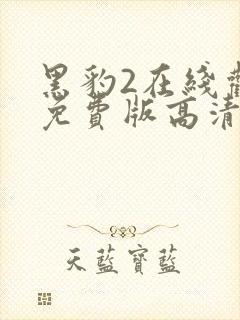 黑豹2在綫
免費版高清
天藍寶藍